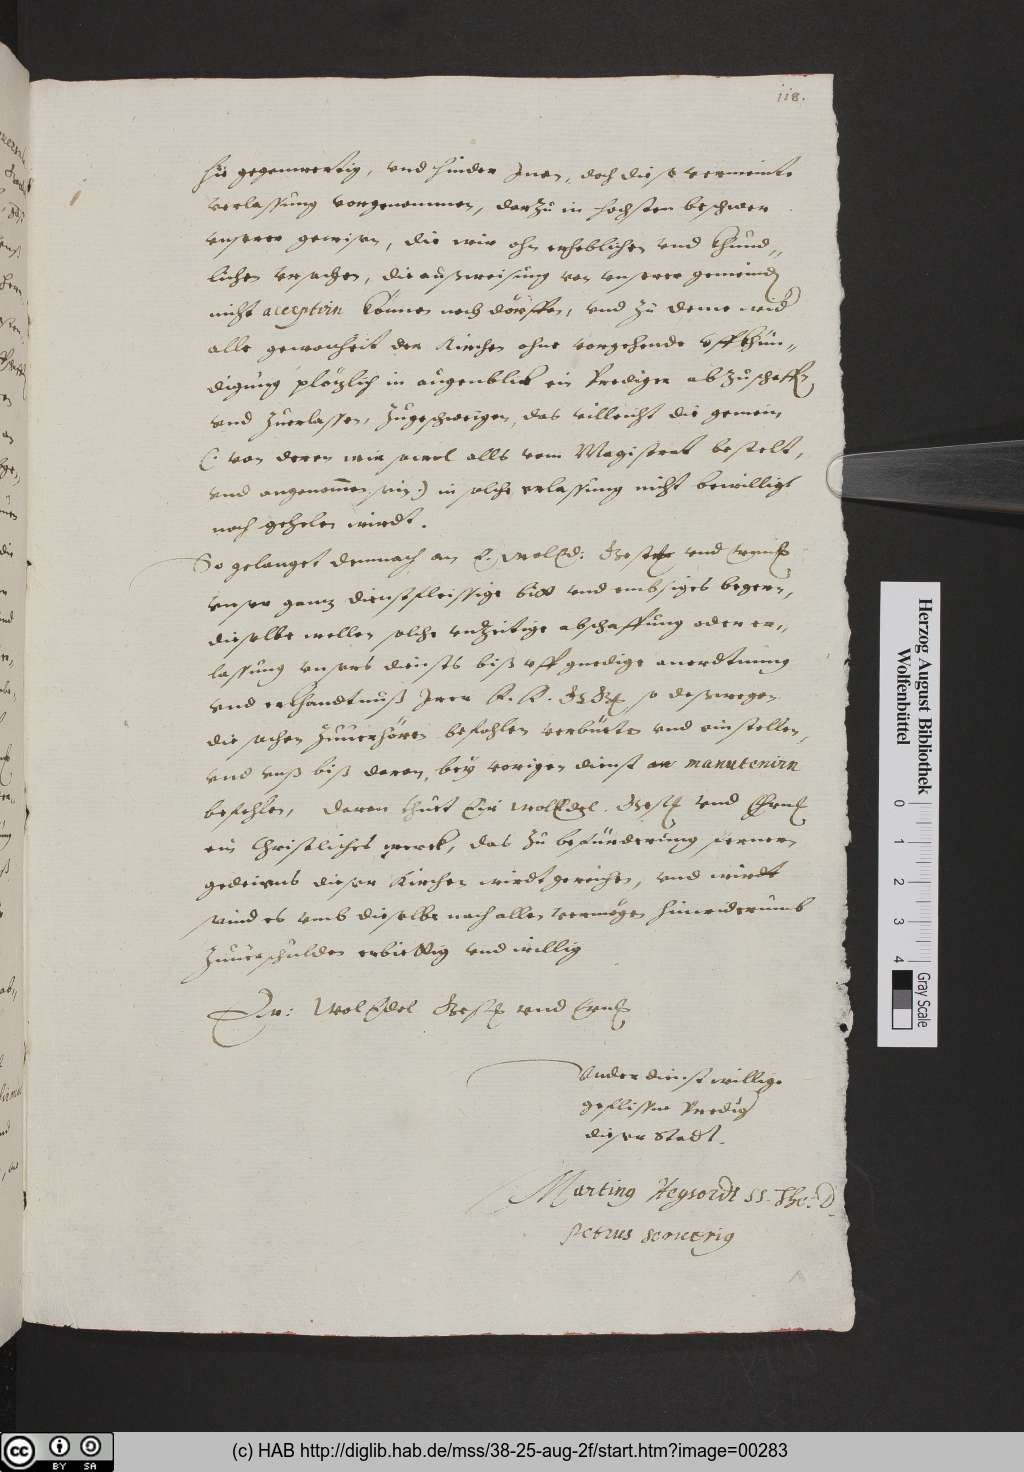 118.
hie gegenwertig, und hinder Inen, doch dise vermeinte
verlassung vorgenommen, darzu in hochsten beschwer
unserer gewisen, die wir ohn erheblichen und khund„
lichen ursachen, die außweisung von unserer gemeind
nicht acceptirn können noch dörffen, und zu deme wid
alle gewonheit der Kirchen ohne vorgehende uffkhün„
digung plötzlich in augenblick ein Prediger abzuschaffen
und zuerlassen, zugeschweigen, das villeicht die gemein
(: von deren wir sowol alls vom Magistrat bestelt,
und angenommen sein:) in solche erlassung nicht bewilligt
noch gehelen wirdt.
So gelanget demnach an E. Wol Ed: Gest und
unser ganz dienstfleissige bitt und embsiges begern,
dieselbe wellen solche unzeitige abschaffung oder er„
lassung unsers diensts biß uff gnedige anordtnung
und erkhandtnuß Irer K. K. so deßwegen
die sachen zuuerhören befohlen und einstellen,
und unß biß daran, bey vorigen dienst manutenirn
befehlen, daran thuet Eur WolEdel. Gest und
ein Christliches werck, das zu befürderung fernern
gedeiens dieser Kirchen wirdt gereichen, und wirdt
sind es umb dieselbe nach allen vermögen hinwiderumb
zuuerschulden erbiettig und willig
Eu: Wol Edel Gest und
Under dienstwillige
geflissne Predig
dieser Stadt.
Martin9 Heysordt SS. The: D.
Petrus
Herzog August Bibliothek
Wolfenbüttel
0 1 2 3 4
Gray Scale
cc BY SA
(c) HAB http://diglib.hab.de/mss/38-25-aug-2f/start.htm?image=00283